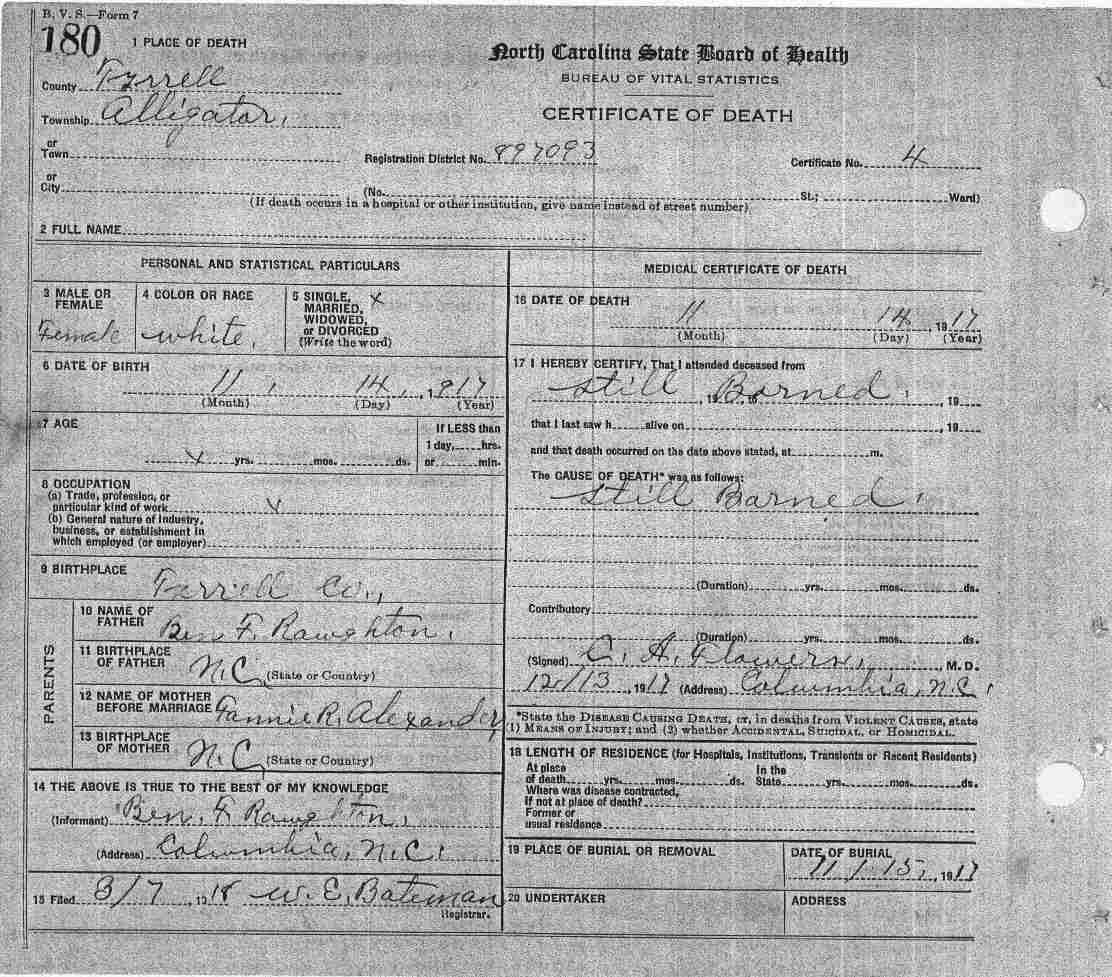 B. V. S.—Form 7
180
1 PLACE OF DEATH
North Carolina State Board of Health
BUREAU OF VITAL STATISTICS
CERTIFICATE OF DEATH
County Tyrrell
Township Alligator.
or
Town
Registration District No. 897093
Certificate No. 4
or
City (No. St.; Ward)
(If death occurs in a hospital or other institution, give name instead of street number)
2 FULL NAME
PERSONAL AND STATISTICAL PARTICULARS
3 MALE OR
FEMALE
Female
4 COLOR OR RACE
white.
5 SINGLE, x
MARRIED,
WIDOWED,
or DIVORCED
(Write the word)
6 DATE OF BIRTH
11, 14, 1917
(Month) (Day) (Year)
7 AGE
x yrs. mos. ds.
If LESS than
1 day, hrs.
or min.
8 OCCUPATION
(a) Trade, profession, or
particular kind of work x
(b) General nature of industry,
business, or establishment in
which employed (or employer)
9 BIRTHPLACE
Tyrrell Co.,
PARENTS
10 NAME OF
FATHER
Ben F. Raughton.
11 BIRTHPLACE
OF FATHER
N.C. (State or Country)
12 NAME OF MOTHER
BEFORE MARRIAGE Fannie R. Alexander
13 BIRTHPLACE
OF MOTHER
N.C. (State or Country)
14 THE ABOVE IS TRUE TO THE BEST OF MY KNOWLEDGE
(Informant) Ben. F. Raughton.
(Address) Columbia, N.C.
15 Filed 3/7, 1918 W. E. Bateman
Registrar.
MEDICAL CERTIFICATE OF DEATH
16 DATE OF DEATH
11 14 1917
(Month) (Day) (Year)
17 I HEREBY CERTIFY, That I attended deceased from
Still Borned., 19 , to , 19
that I last saw h alive on , 19
and that death occurred on the date above stated, at m.
The CAUSE OF DEATH* was as follows:
Still Borned.
(Duration) yrs. mos. ds.
Contributory
(Duration) yrs. mos. ds.
(Signed) C. A. Flowers, M. D.
12/13, 1917 (Address) Columbia, N.C.
*State the DISEASE CAUSING DEATH, or, in deaths from VIOLENT CAUSES, state
(1) MEANS OF INJURY; and (2) whether ACCIDENTAL, SUICIDAL, or HOMICIDAL.
18 LENGTH OF RESIDENCE (for Hospitals, Institutions, Transients or Recent Residents)
At place In the
of death yrs. mos. ds. State yrs. mos. ds.
Where was disease contracted,
If not at place of death?
Former or
usual residence
19 PLACE OF BURIAL OR REMOVAL
DATE OF BURIAL
11/15, 1917
20 UNDERTAKER
ADDRESS